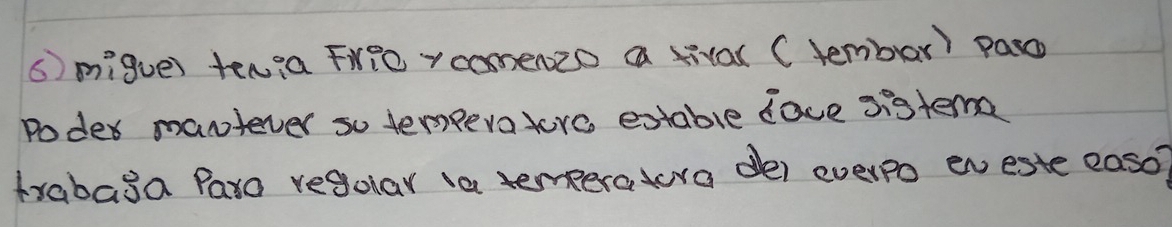 6) miguel tenia Frio y comenzo a tirar ( temblar) para
Poder mantener su temperatura estable ¿que sistema
trabaja Para regular la temperatura del cuerpo en este caso?